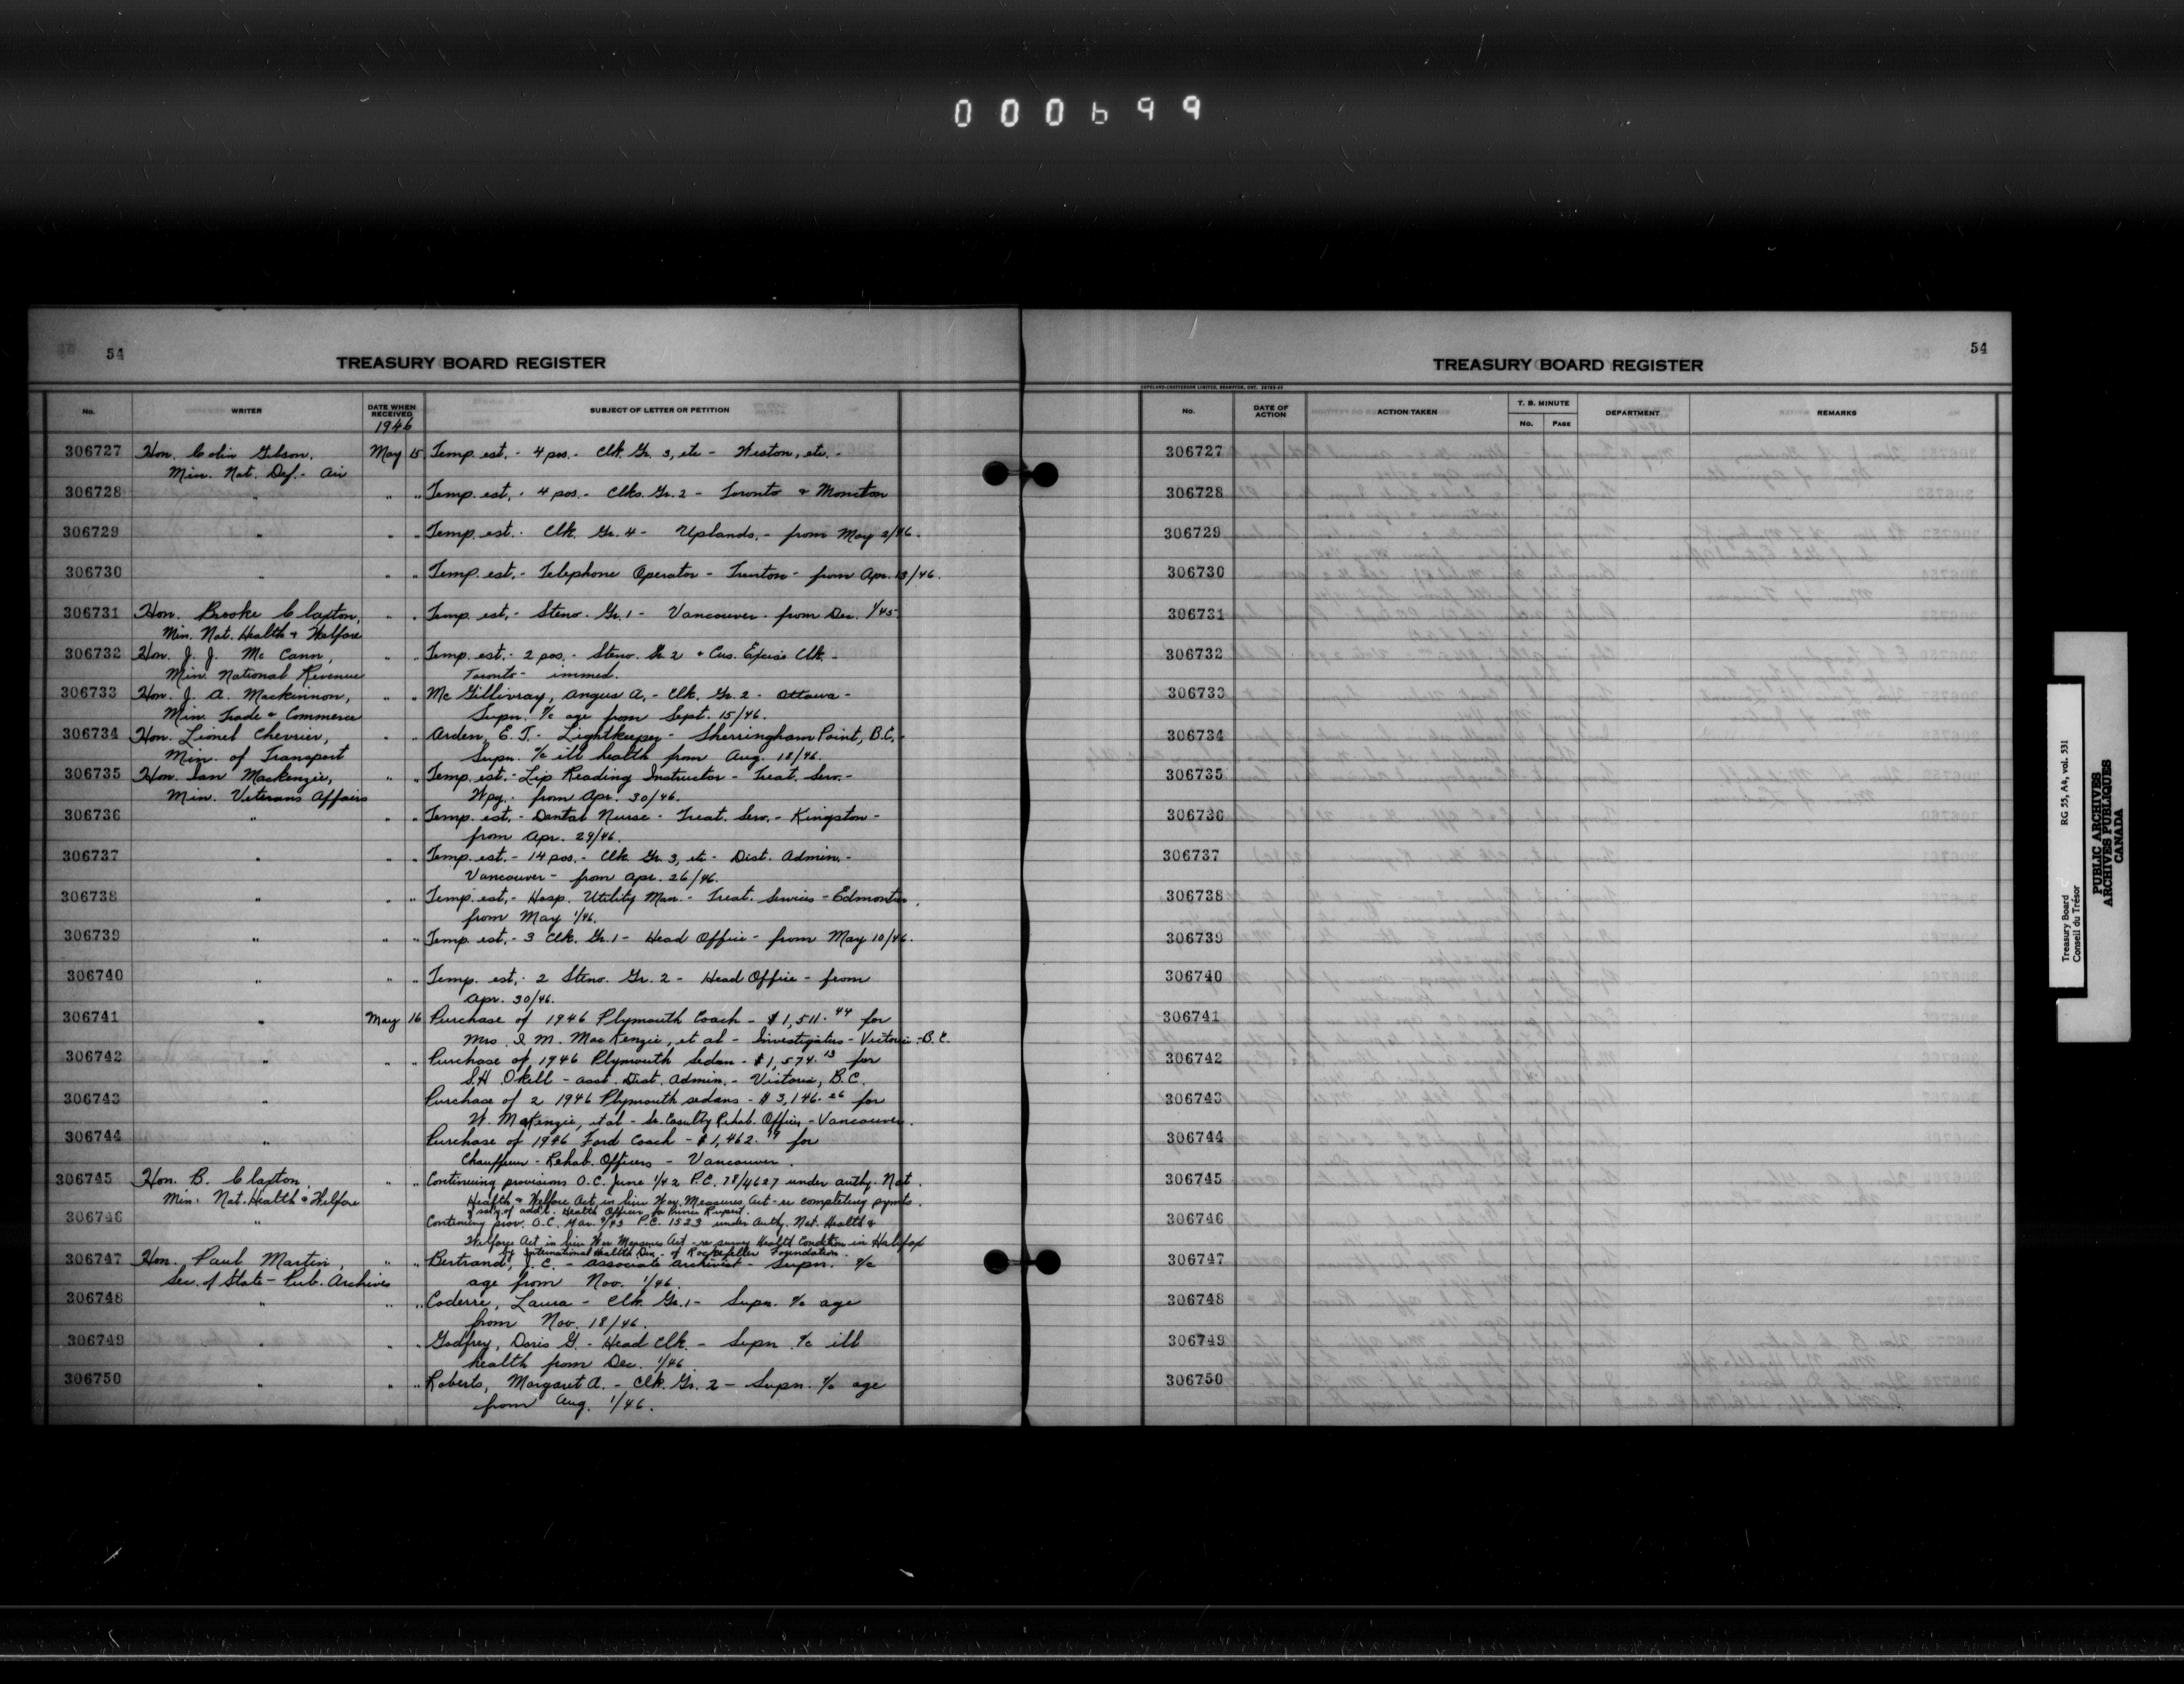 000699
54
TREASURY BOARD REGISTER
No. WRITER DATE WHEN RECEIVED SUBJECT OF LETTER OR PETITION
1946
306727 Hon. Colin Gibson, May 15 Temp. est. - 4 pos. - Clk. Gr. 3, etc - Weston, etc. -
Min. Nat. Def. - Air
306728 " " " Temp. est. - 4 pos. - Clks. Gr. 2 - Toronto & Moncton
306729 " " " Temp. est. - Clk. Gr. 4 - Uplands. - from May 2/46.
306730 " " " Temp. est. - Telephone Operator - Trenton - from Apr. 13/46.
306731 Hon. Brooke Claxton, " " Temp. est. - Steno. Gr. 1 - Vancouver - from Dec. 1/45
Min. Nat. Health & Welfare
306732 Hon. J. J. McCann, " " Temp. est. - 2 pos. - Steno. Gr. 2 & Cus. Excise Clk. -
Min. National Revenue Toronto - immed.
306733 Hon. J. A. Mackinnon, " " McGillivray, Angus A. - Clk. Gr. 2 - Ottawa -
Min. Trade & Commerce Supn. a/c age from Sept. 15/46.
306734 Hon. Lionel Chevrier, " " Arden, E. T. - Lightkeeper - Sherringham Point, B.C. -
Min. of Transport Supn. a/c ill health from Aug. 18/46.
306735 Hon. Ian Mackenzie, " " Temp. est. - Lip Reading Instructor - Treat. Serv. -
Min. Veterans Affairs Wpg. - from Apr. 30/46.
306736 " " " Temp. est. - Dental Nurse - Treat. Serv. - Kingston -
from Apr. 29/46.
306737 " " " Temp. est. - 14 pos. - Clk. Gr. 3, etc - Dist. Admin. -
Vancouver - from Apr. 26/46.
306738 " " " Temp. est. - Hosp. Utility Man. - Treat. Services - Edmonton,
from May 1/46.
306739 " " " Temp. est. - 3 Clk. Gr. 1 - Head Office - from May 10/46.
306740 " " " Temp. est. - 2 Steno. Gr. 2 - Head Office - from
Apr. 30/46.
306741 " May 16 Purchase of 1946 Plymouth Coach - $1,511.44 for
Mrs. I. M. MacKenzie, et al - Investigators - Victoria - B.C.
306742 " " " Purchase of 1946 Plymouth Sedan - $1,574.13 for
S.H. Okell - Asst. Dist. Admin. - Victoria, B.C.
306743 " Purchase of 2 1946 Plymouth sedans - $3,146.26 for
W. McKenzie, et al - Sr. Casualty Rehab. Officer - Vancouver.
306744 " Purchase of 1946 Ford Coach - $1,462.19 for
Chauffeur - Rehab. Officers - Vancouver.
306745 Hon. B. Claxton, " " Continuing provisions O.C. June 1/42 P.C. 78/4627 under authy. Nat.
Min. Nat. Health & Welfare Health & Welfare Act in lieu War Measures Act - re completing pymts.
of saly. of add'l. Health Officer for Prince Rupert.
306746 " Continuing prov. O.C. Mar. 9/43 P.C. 1523 under Authy. Nat. Health &
Welfare Act in lieu War Measures Act - re survey Health Condition in Halifax
by International Health Div. - of Rockefeller Foundation.
306747 Hon. Paul Martin, " " Bertrand, J. C. - Associate Archivist - Supn. a/c
Sec. of State - Pub. Archives age from Nov. 1/46.
306748 " " " Coderre, Laura - Clk. Gr. 1 - Supn. a/c age
from Nov. 18/46.
306749 " " " Godfrey, Doris G. - Head Clk. - Supn. a/c ill
health from Dec. 1/46
306750 " " " Roberts, Margaret A. - Clk. Gr. 2 - Supn. a/c age
from Aug. 1/46.
54
TREASURY BOARD REGISTER
COPELAND-CHATTERSON LIMITED, BRAMPTON, ONT.
No. DATE OF ACTION ACTION TAKEN T. B. MINUTE No. PAGE DEPARTMENT REMARKS
306727
306728
306729
306730
306731
306732
306733
306734
306735
306736
306737
306738
306739
306740
306741
306742
306743
306744
306745
306746
306747
306748
306749
306750
Treasury Board RG 55, A4, vol. 531
Conseil du Trésor
PUBLIC ARCHIVES
ARCHIVES PUBLIQUES
CANADA